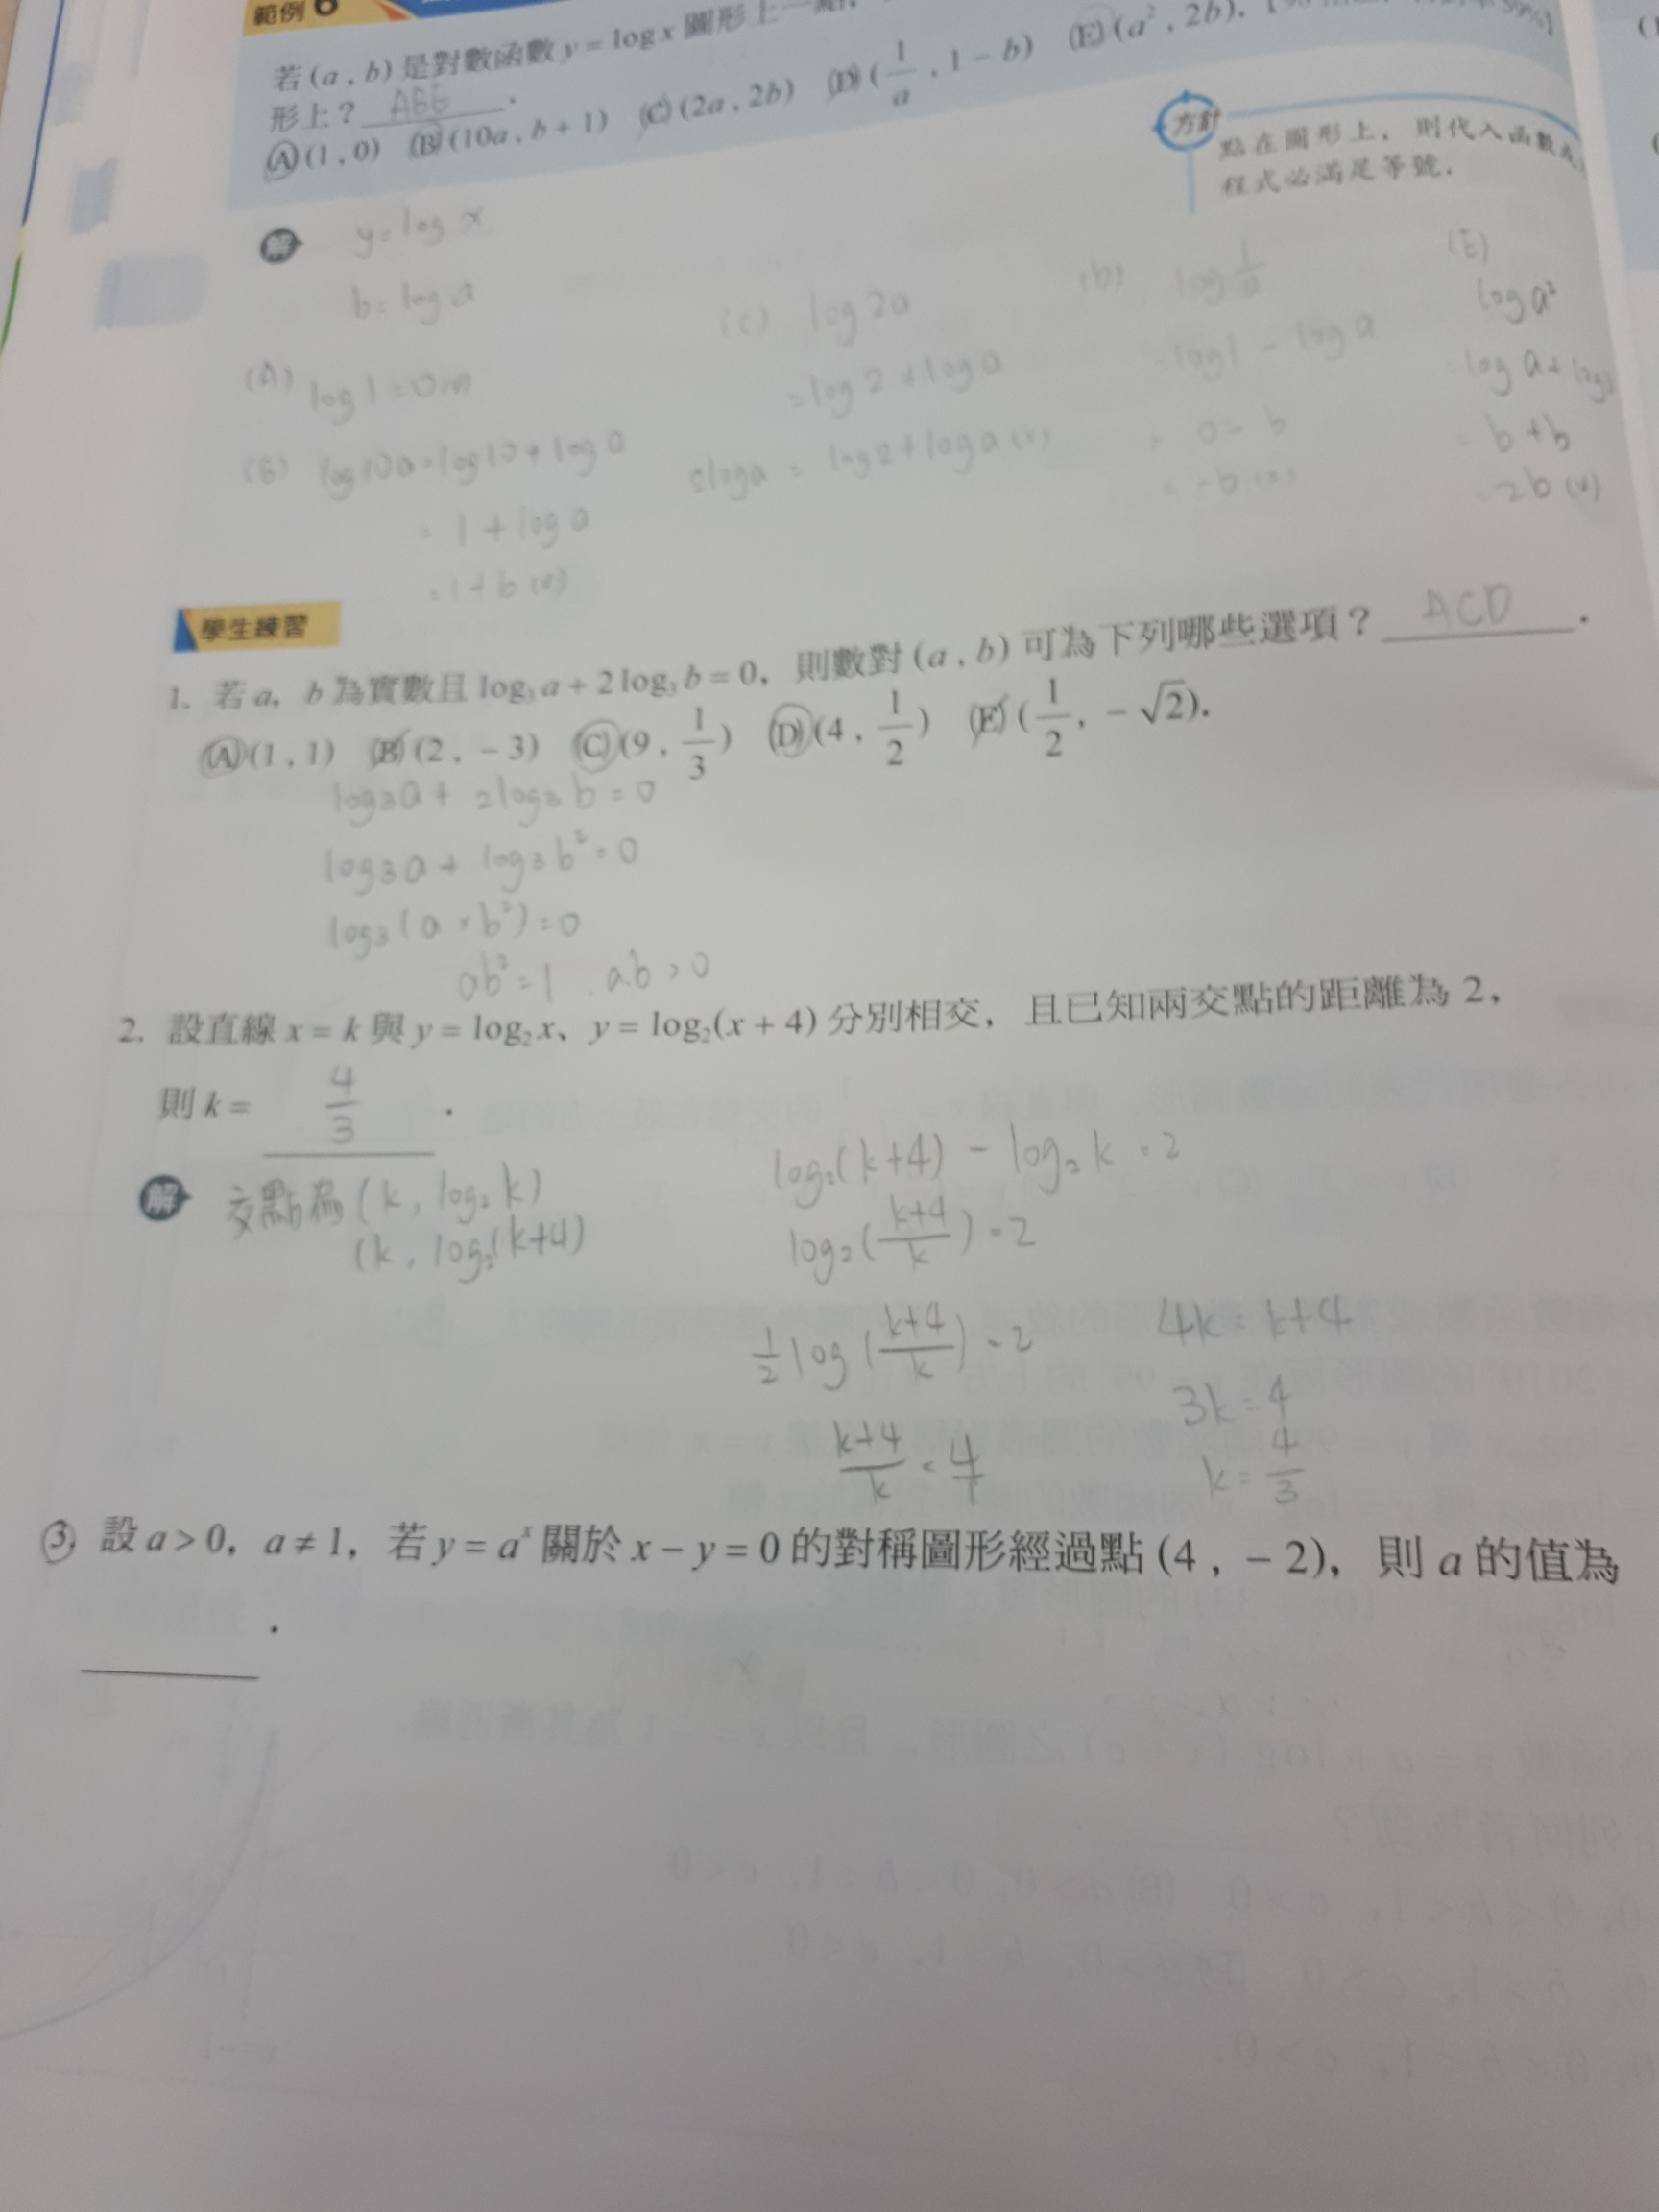 範例 6
若 (a , b) 是對數函數 y = log x 圖形上一點,
形上? ABE .
(A) (1 , 0) (B) (10a , b + 1) (C) (2a , 2b) (D) (1/a , 1 − b) (E) (a² , 2b).
方針
點在圖形上,則代入函數
程式必滿足等號.
解 y = log x
b = log a
(A) log 1 = 0
(B) log 10a = log 10 + log a
= 1 + log a
= 1 + b (v)
(C) log 2a
= log 2 + log a
2log a = log 2 + log a (x)
(D) log 1/a
= log 1 − log a
= 0 − b
= −b (x)
(E)
log a²
= log a + log
= b + b
= 2b (v)
學生練習
1. 若 a, b 為實數且 log₃ a + 2 log₃ b = 0, 則數對 (a , b) 可為下列哪些選項? ACD .
(A) (1 , 1) (B) (2 , − 3) (C) (9 , 1/3) (D) (4 , 1/2) (E) (1/2 , − √2).
log₃a + 2log₃b = 0
log₃a + log₃b² = 0
log₃(a × b²) = 0
ab² = 1 . a.b > 0
2. 設直線 x = k 與 y = log₂ x、y = log₂(x + 4) 分別相交, 且已知兩交點的距離為 2,
則 k = 4/3 .
解 交點為 (k, log₂ k)
(k, log₂(k+4)
log₂(k+4) − log₂ k = 2
log₂(k+4/k) = 2
1/2 log (k+4/k) = 2
k+4/k = 4/1
4k = k+4
3k = 4
k = 4/3
3. 設 a > 0, a ≠ 1, 若 y = aˣ 關於 x − y = 0 的對稱圖形經過點 (4 , − 2), 則 a 的值為
.